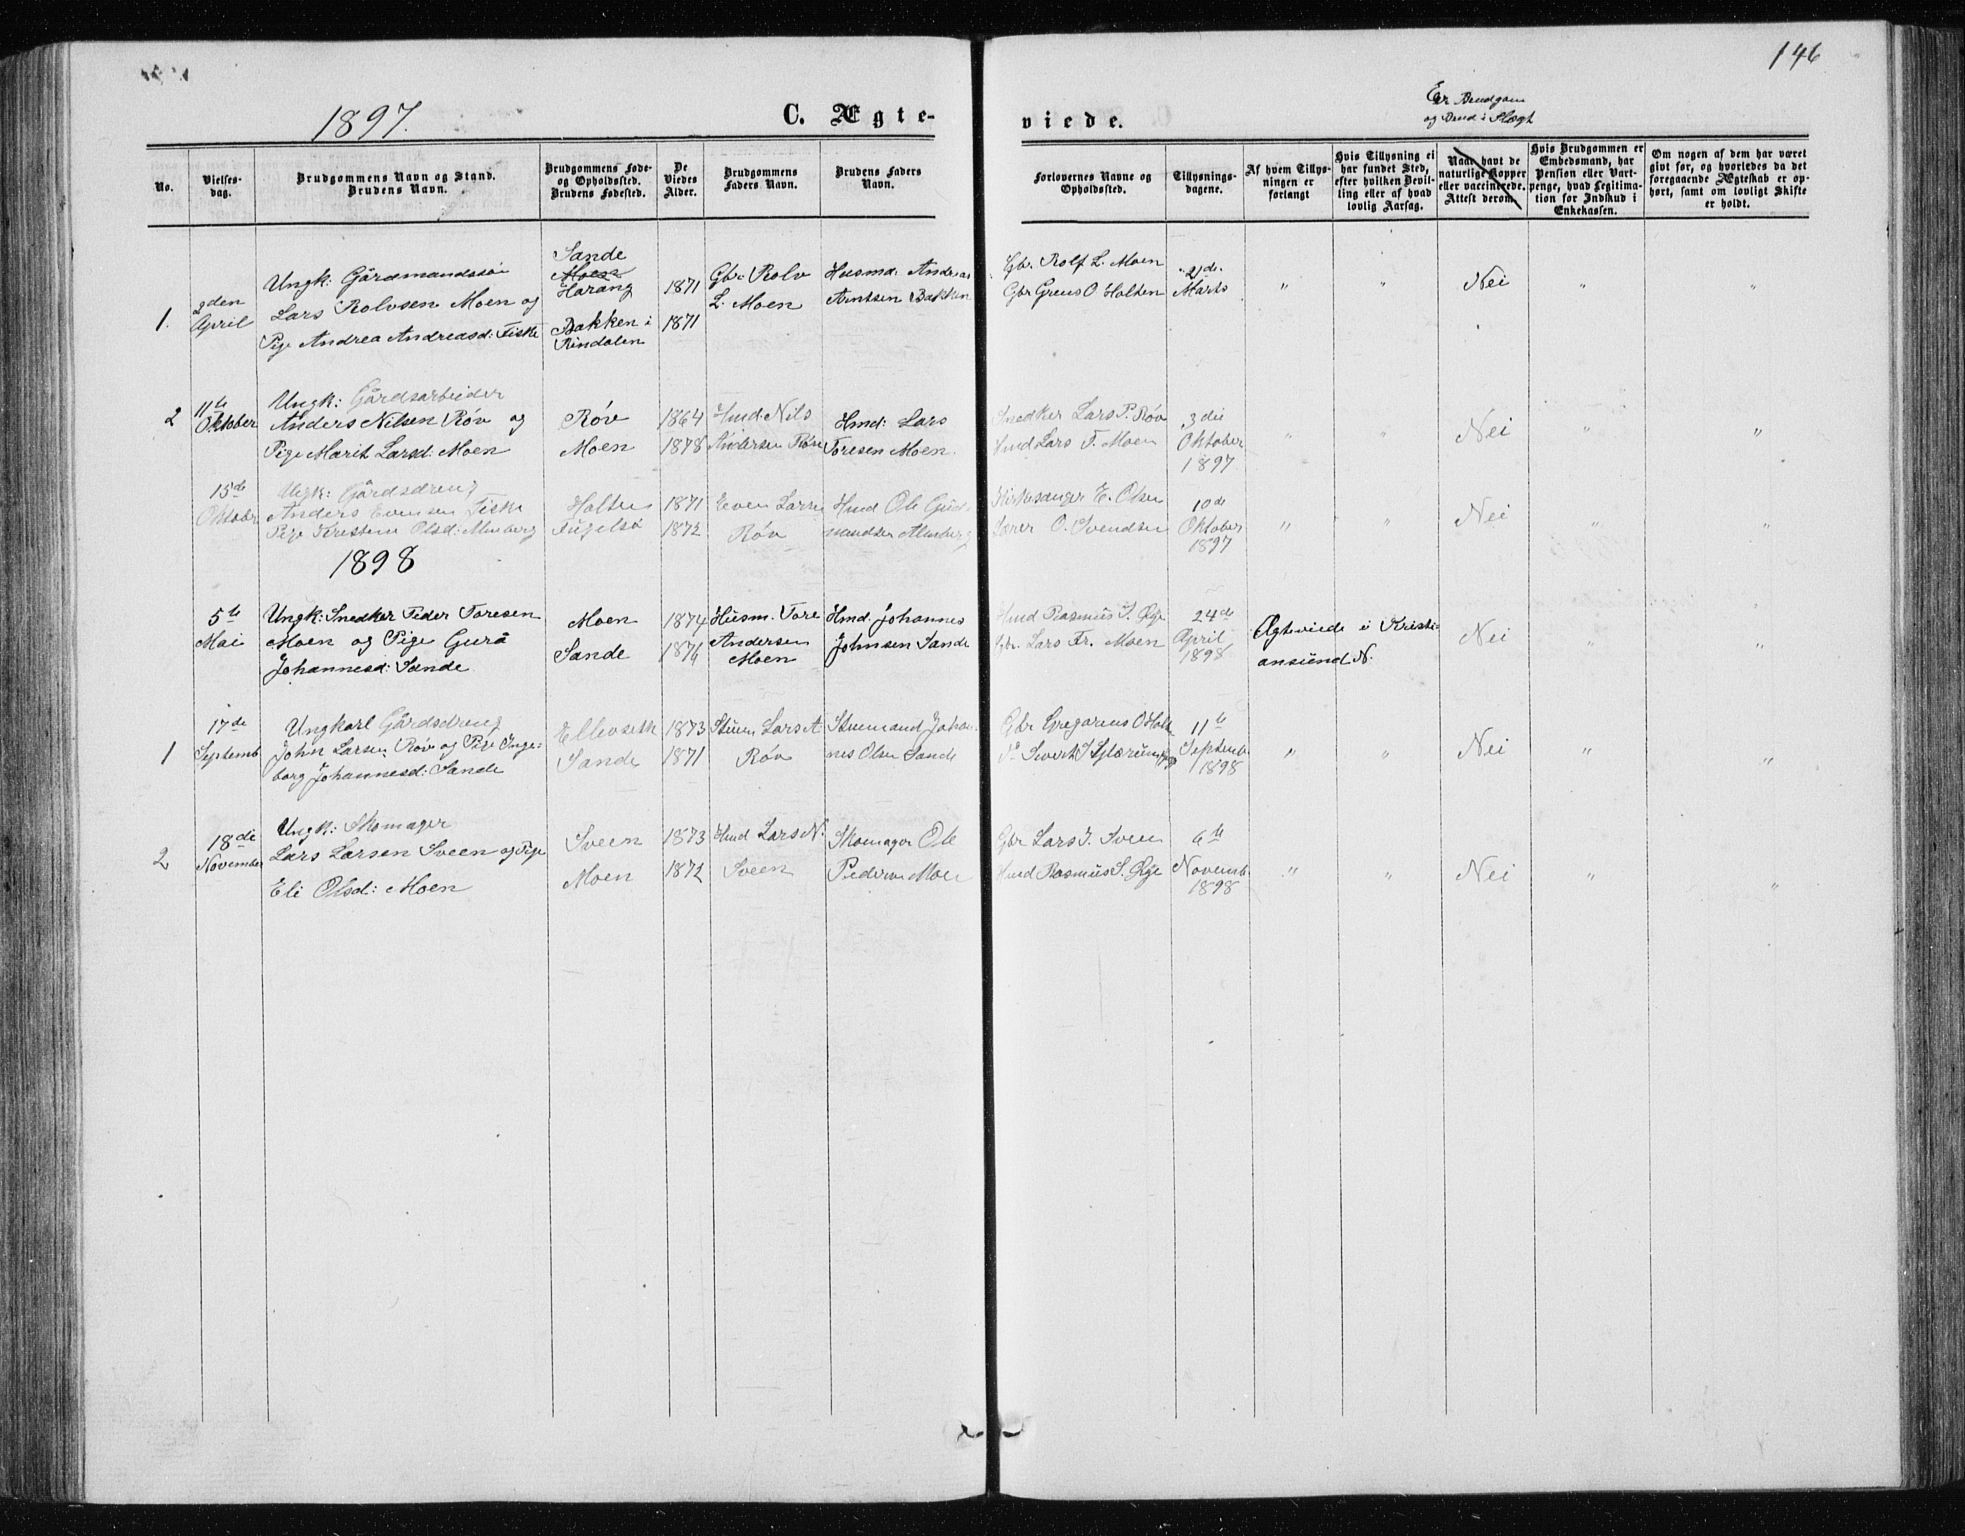 146
1897.
C. Ægte-
viede.
Er Brudgom
og Brud i Slægt
No.
Vielses-
dag.
Brudgommens Navn og Stand.
Brudens Navn.
Brudgommens Føde-
og Opholdssted.
Brudens Fødested.
De
Viedes
Alder.
Brudgommens
Faders Navn.
Brudens Faders
Navn.
Forlovernes Navne og
Opholdssted.
Tillysnings-
dagene.
Af hvem Tillys-
ningen er
forlangt
Hvis Tillysning ei
har fundet Sted,
efter hvilken Bevil-
ling eller af hvad
lovlig Aarsag.
Naar havt de
naturlige Kopper
eller vaccinerede.
Attest derom.
Hvis Brudgommen er
Embedsmand, har
Pension eller Vart-
penge, hvad Legitima-
tion for Indskud i
Enkekassen.
Om nogen af dem har været
givt før, og hvorledes da det
foregaaende Ægteskab er op-
hørt, samt om lovligt Skifte
er holdt.
1.
2den
April
Ungk: Gårdmandssøn
Lars Rolvsen Moen og
Pige Andrea Andreasd: Fiske
Sande
Moen
Harang
Bakken i
Rindalen
1871
1871
Gbr. Rolv
L. Moen
Husmd. Andreas
Arntsen Bakken
Gbr. Rolf L. Moen
Gbr Greus O Holten
21de
Marts
"
"
Nei
"
"
2
11te
Oktober
Ungk: Gårdsarbeider
Anders Nilsen Røv og
Pige Marit Larsd: Moen
Røv
Moen
1864
1878
Hmd: Nils
Andersen Røv
Hmd: Lars
Toresen Moen.
Snedker Lars P. Røv
Hmd Lars T. Moen
3die
Oktober
1897
"
"
Nei
"
"
15de
Oktober
Ungk: Gårdsdreng
Anders Evensen Fiske
Pige Kristine Olsd: Almberg
Holten
Fugelsø
1871
1872
Even Larsen
Røv
Hmd Ole Gud-
mundsen Almberg
Kirkesanger E. Olsen
Lærer O. Svendsen
10de
Oktober
1897
"
"
Nei
"
"
1898
5te
Mai
Ungk: Snedker Peder Toresen
Moen og Pige Gurå
Johannesd: Sande
Moen
Sande
1874
1876
Husm. Tore
Andersen
Moen
Hmd. Johannes
Johnsen Sande
Hmd Rasmus S. Øye
Gbr. Lars Fr. Moen
24de
April
1898
Ægteviede i Kristi-
ansund N.
Nei
"
"
1
17de
Septemb.
Ungkarl Gårdsdreng
John Larsen Røv og Pige Inge-
borg Johannesd: Sande
Ellevseth
Sande
1873
1871
Sturm Lars A
Røv
Strmand Johan-
nes Olsen Sande
Gbr Gregorius O Holten
11te
Septemb.
1898
"
"
Nei
"
"
2
18de
November
Ungk: Skomager
Lars Larsen Sveen og Pige
Eli Olsd: Moen
Sveen
Moen
1873
1872
Hmd Lars N.
Sveen
Skomager Ole
Pedersen Moen
Gbr Lars I. Sveen
Hmd Rasmus S. Øye
6te
Novemb.
1898
"
"
Nei
"
"